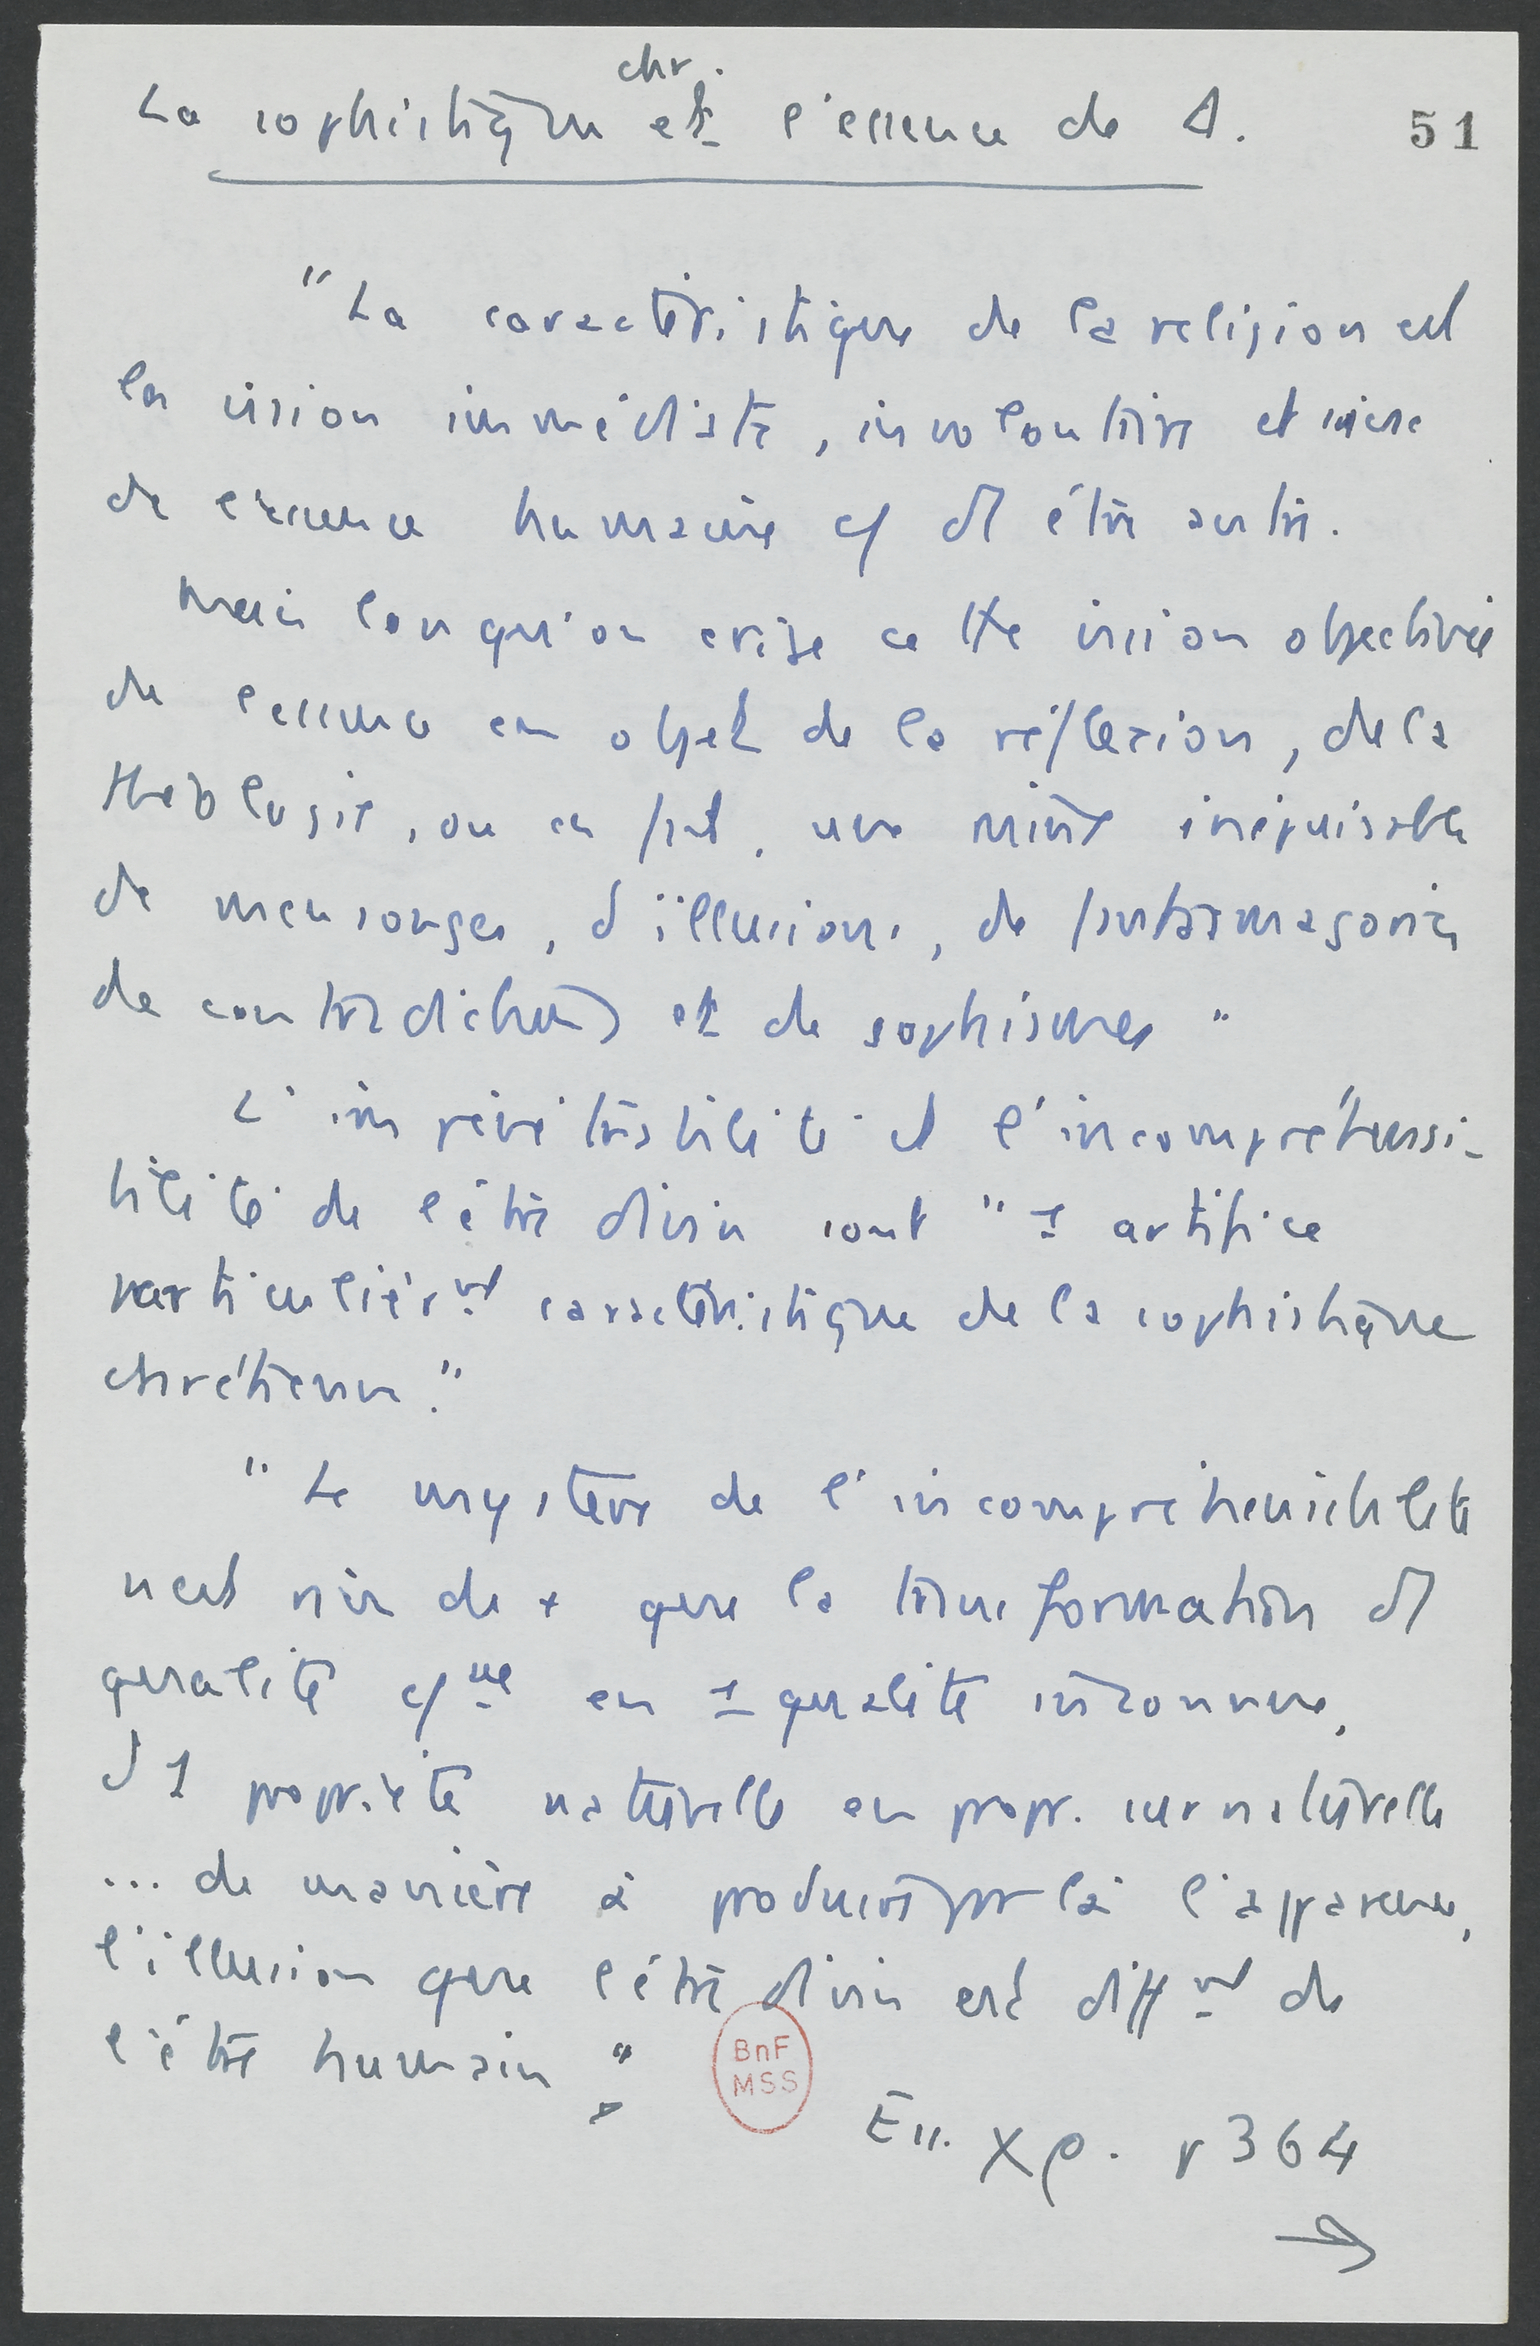 chr.
La sophistique et l'essence de Δ.
51
"La caractéristique de la religion est
la vision immédiate, involontaire et
de l'essence humaine cf d1 être autre.
Mais lorsqu'on érige cette vision objectivée
de l'essence en objet de la réflexion, de la
théologie, on en fait, une mine inépuisable
de mensonges, d'illusions, de fantasmagories
de contradictions et de sophismes"
L'impénétrabilité et l'incompréhensi-
bilité de l'être divin sont "1 artifice
particulièrmt caractéristique de la sophistique
chrétienne."
"Le mystère de l'incompréhensibilité
n'est rien de + que la transformation d1
qualité en 1 qualité inconnue,
d1 propriété naturelle en propr. surnaturelle
... de manière à produire par là l'apparence,
l'illusion que l'être divin est diffmt de
l'être humain"
BnF
MSS
Ess. Xρ. p 364
→